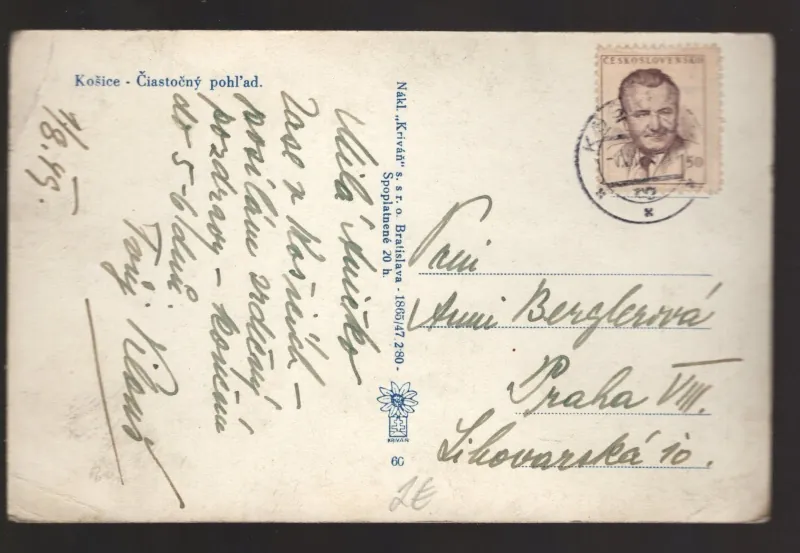 Košice - Čiastočný pohľad.
1/8.49.
Milá Aničko
Zase z Košic
posílám srdečný
pozdrav - končím
do 5-6 dnů.
Tvůj
Nákl. „Kriváň" s. s r. o. Bratislava - 1865/47. 2·80 -
Spoplatnené 20 h.
KRIVÁŇ
60
2€
ČESKOSLOVENSKO
1,50
Paní
Anni Berglerová
Praha VIII.
Lihovarská 10.